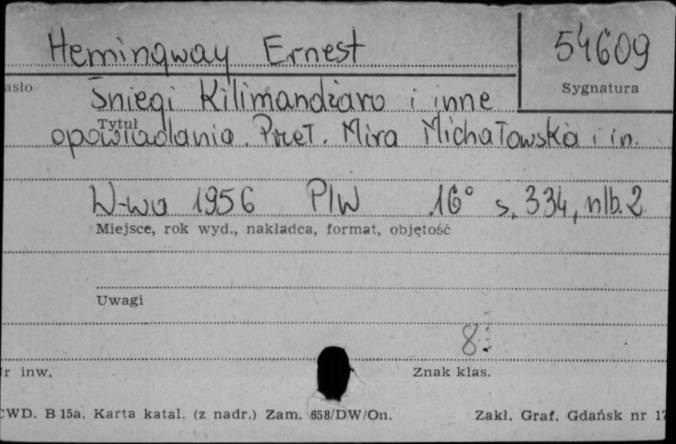 Hemingway Ernest 54609
asło Sygnatura
Śniegi Kilimandżaro i inne
Tytuł
opowiadania. Przeł. Mira Michałowska i in.
W-wa 1956 PIW 16° s. 334, nlb. 2
Miejsce, rok wyd., nakładca, format, objętość
Uwagi
8.
r inw. Znak klas.
CWD. B 15a. Karta katal. (z nadr.) Zam. 658/DW/On. Zakł. Graf. Gdańsk nr 17